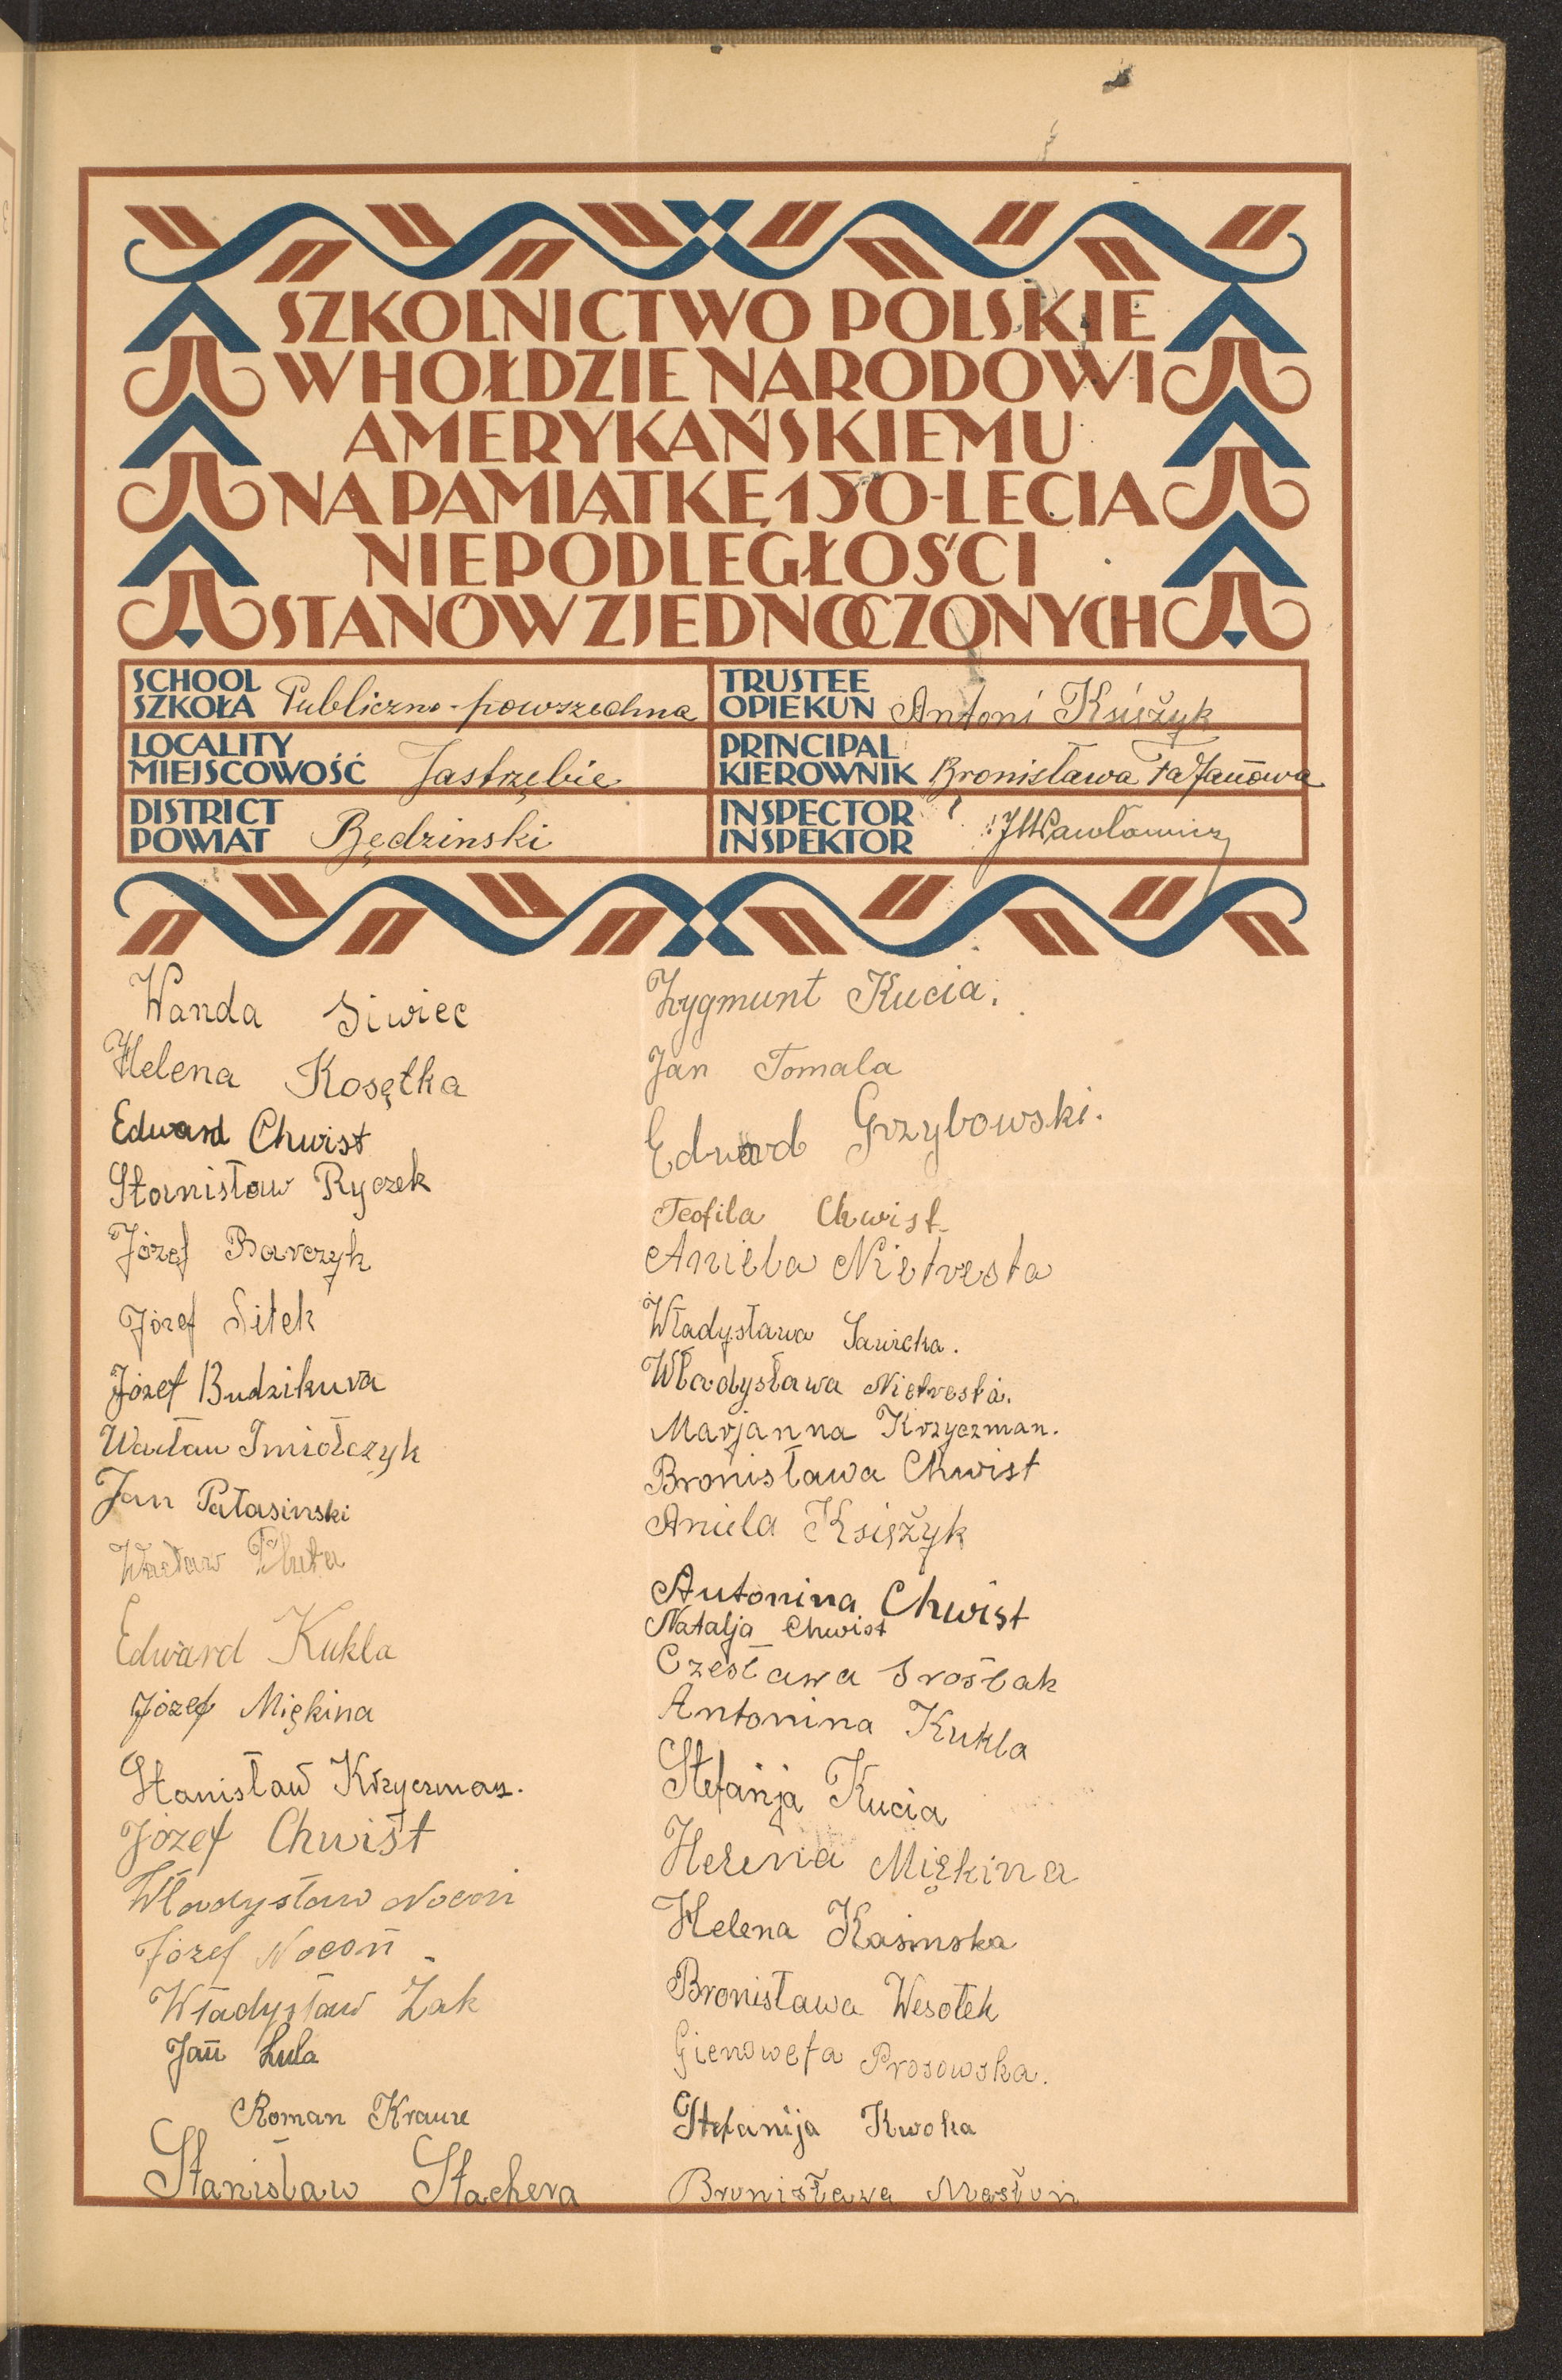 SZKOLNICTWO POLSKIE
W HOŁDZIE NARODOWI
AMERYKAŃSKIEMU
NA PAMIĄTKĘ 150-LECIA
NIEPODLEGŁOŚCI
STANÓW ZJEDNOCZONYCH
SCHOOL
SZKOŁA Publiczno-powszechna
TRUSTEE
OPIEKUN Antoni Księżyk
LOCALITY
MIEJSCOWOŚĆ Jastrzębie
PRINCIPAL
KIEROWNIK Bronisława
DISTRICT
POWIAT Będzinski
INSPECTOR
INSPEKTOR
Wanda Siwiec
Helena Kosętka
Edward Chwist
Stanisław Ryczek
Józef Barczyk
Józef Sitek
Józef Budzikura
Wacław Imiołczyk
Jan Pałasinski
Wacław Pluta
Edward Kukla
Józef Miękina
Stanisław Krzyczman.
Józef Chwist
Władysław Nocoń
Józef Nocoń
Władysław Żak
Jan Lula
Roman Krauze
Stanislaw Stachera
Zygmunt Kucia.
Jan Tomala
Edward Grzybowski.
Teofila Chwist
Aniela Nietresta
Władysława Sawicka.
Władysława Nietresta.
Marjanna Krzyczman.
Bronisława Chwist
Aniela Księżyk
Antonina Chwist
Natalja Chwist
Czesława Sroślak
Antonina Kukla
Stefanja Kucia
Helena Miękina
Helena Kasinska
Bronisława Wesołek
Gienowefa Prosowska.
Stefanija Kwoka
Bronisława Masłoń